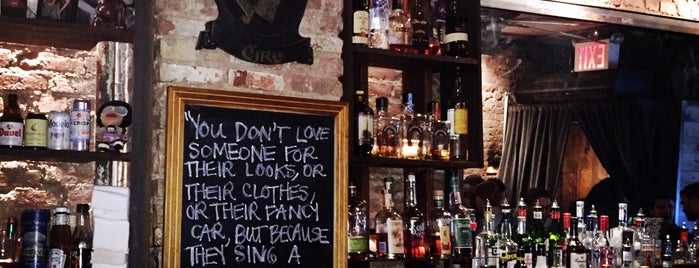 EIRE
Duvel
EXIT
"YOU DON'T LOVE
SOMEONE FOR
THEIR LOOKS, OR
THEIR CLOTHES,
OR THEIR FANCY
CAR, BUT BECAUSE
THEY SING A